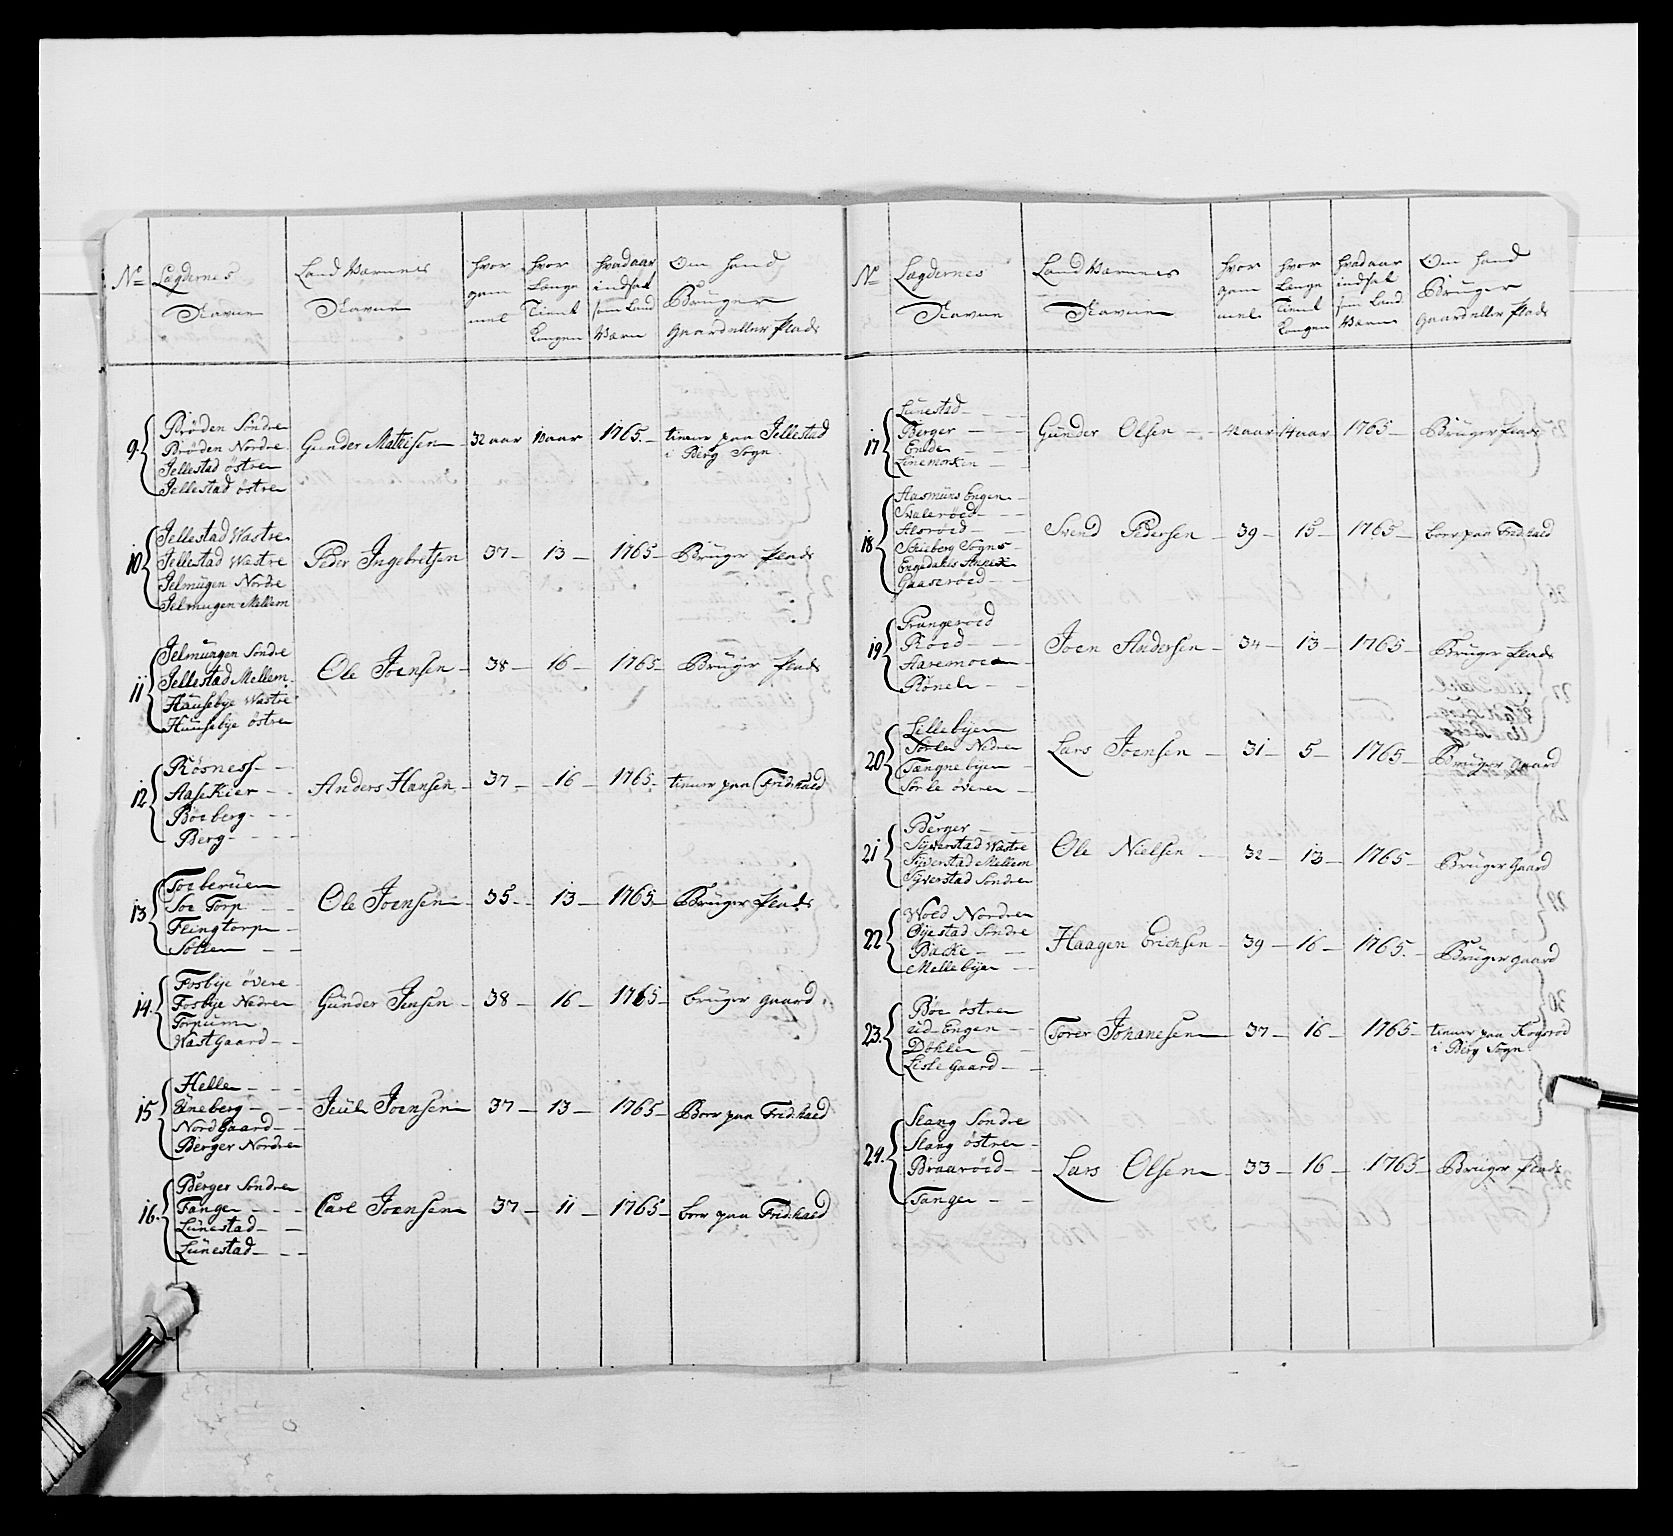 No Lægdernes Navne
Land Værnes Navne
hvor gammel
hvor Længe Tient Kongen
hvad aar indsat som Land Værn
Om hand Bruger Gaard eller Plads
9. Brøden Søndre
Brøden Nordre
Jellestad østre
Jellestad østre
Gunder Matisen 32 aar 10 aar 1765 tiener paa Jellestad
i Berg Sogn
10 Jellestad Wastre
Jellestad Wæstre
Jelmügen Nordre
Jelmugen Mellem
Peder Ingebretsen 37 13 1765 Brüger Plads
11 Jelmungen Søndre
Jellestad Mellem
Haüsebye Wastre
Huusebye østre
Ole Joensen 38 16 1765 Brüger Plads
12 Røsness
Aaskier
Böe berg
Berg
Anders Hansen 37 16 1765 tiener paa Fridr:hald
13 Toeberüen
Soe Torp
Flingtorp
Solten
Ole Joensen 35 13 1765 Brüger Plads
14. Fosbye øvere
Fosbye Nedre
Torpum
Wastgaard
Günder Jensen 38 16 1765 brüger gaard
15 Helle
Üneberg
Nordgaard
Berger Nordre
Juul Joensen 37 13 1765 Boer paa Frid:hald
16. Berger Søndre
Tanger
Lünestad
Lünestad
Carl Joensen 37 11 1765 boer paa Frid:hald
No Lægdernes Navne
Land Værnes Navne
hvor gammel
hvor Længe Tient Kongen
hvad aar indsat som Land Værn
Om hand Bruger Gaard eller Plads
17 Lunestad
Berger
Ende
Linemorken
Günder Olsen 42 aar 14 aar 1765 Brüger Plads
18 Aasmüns Engen
Svalerøed
Alsrøed
Skieberg Sogns
Engedahls Annex
Gaaserøed
Svend Pedersen 39 15 1765 boer paa Frid:hald
19 Prangerøed
Roed
Haremoen
Rönel
Joen Andersen 34 13 1765 Brüger Plads
20 Lillebyen
Sørlie Nedre
Tangnebyen
Sørlie øvere
Lars Joensen 31 5 1765 Brüger Gaard
21 Berger
Syverstad Wæstre
Syverstad Mellem
Syverstad Søndre
Ole Nielsen 32 13 1765 Brüger Gaard
22 Woed Nordre
Øyestad Søndre
Backe
Mellebyen
Haagen Erichsen 39 16 1765 Brüger gaard
23. Böe østre
ud Engen
Döhlen
Lisle Gaard
Torer Johanesen 37 16 1765 tiener paa Kogsrød
i Berg Sogn
24. Stang Søndre
Stang østre
Braarøed
Tanger
Lars Olsen 33 16 1765 Brüger Plads